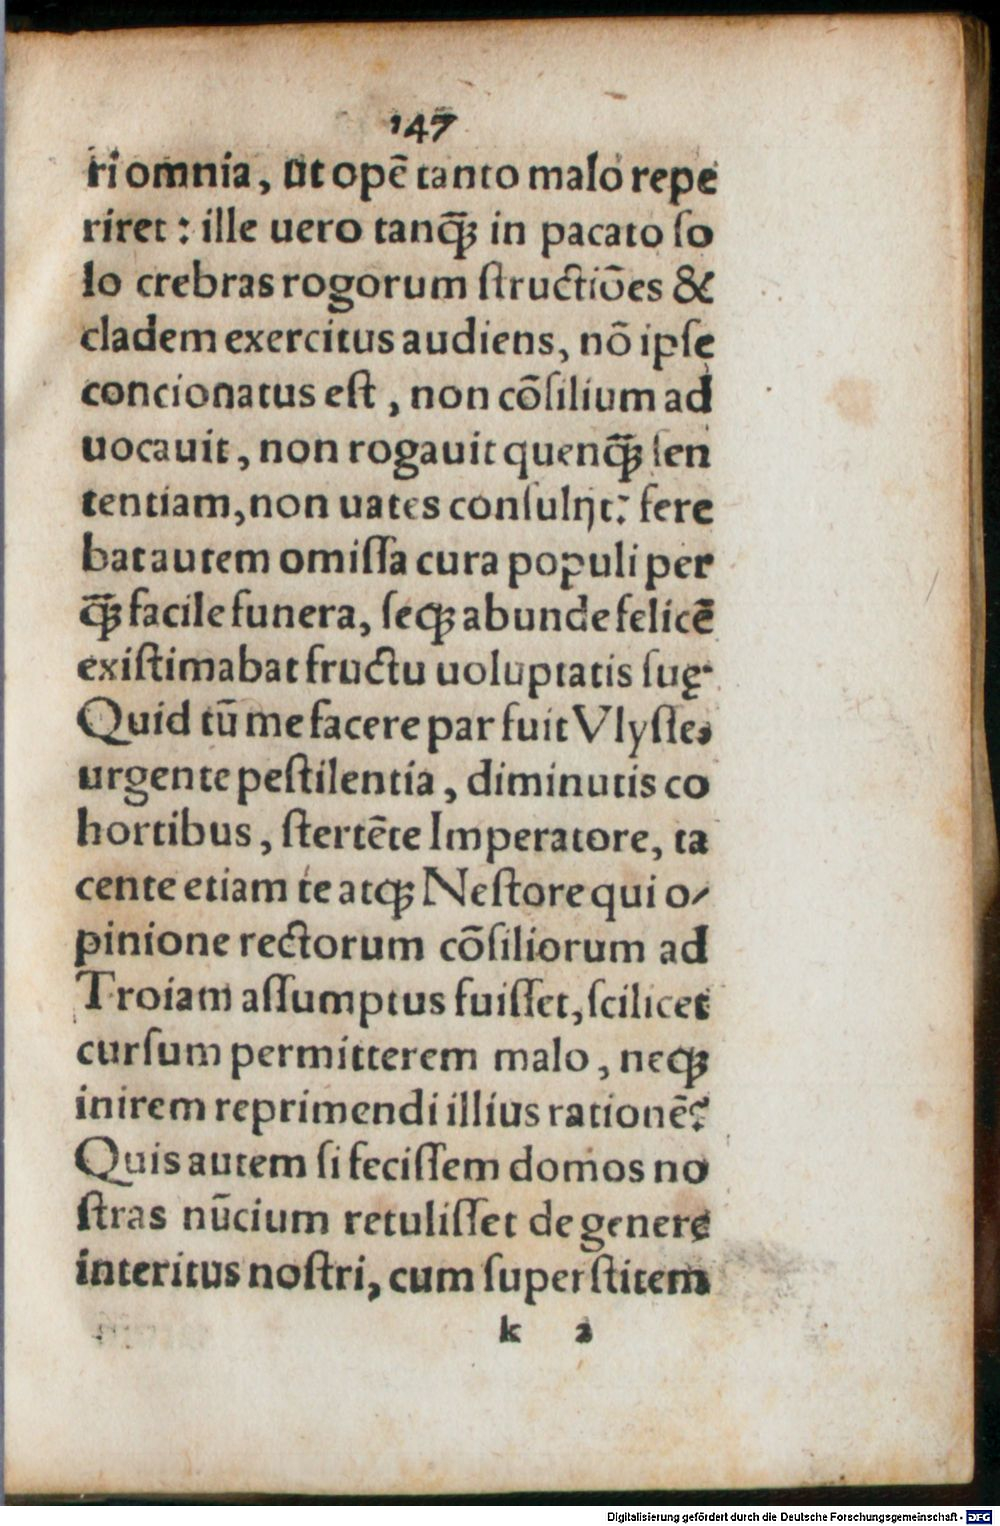 147
ri omnia, ut opē tanto malo repe
riret: ille uero tanꝗ̃ in pacato ſo
lo crebras rogorum ſtructiōes &
cladem exercitus audiens, nō ipſe
concionatus eſt, non cōſilium ad
uocauit, non rogauit quenꝗ̃ ſen
tentiam, non uates conſulijt: fere
bat autem omiſſa cura populi per
ꝗ̃ facile funera, ſeqꝫ abunde felicē
exiſtimabat fructu uoluptatis ſuę.
Quid tū me facere par fuit Vlyſſes
urgente peſtilentia, diminutis co
hortibus, ſtertēte Imperatore, ta
cente etiam te atqꝫ Neſtore qui o/
pinione rectorum cōſiliorum ad
Troiam aſſumptus fuiſſet, ſcilicet
curſum permitterem malo, neqꝫ
inirem reprimendi illius rationē?
Quis autem ſi feciſſem domos no
ſtras nūcium retuliſſet de genere
interitus noſtri, cum ſuperſtitem
k 2
Digitalisierung gefördert durch die Deutsche Forschungsgemeinschaft - DFG